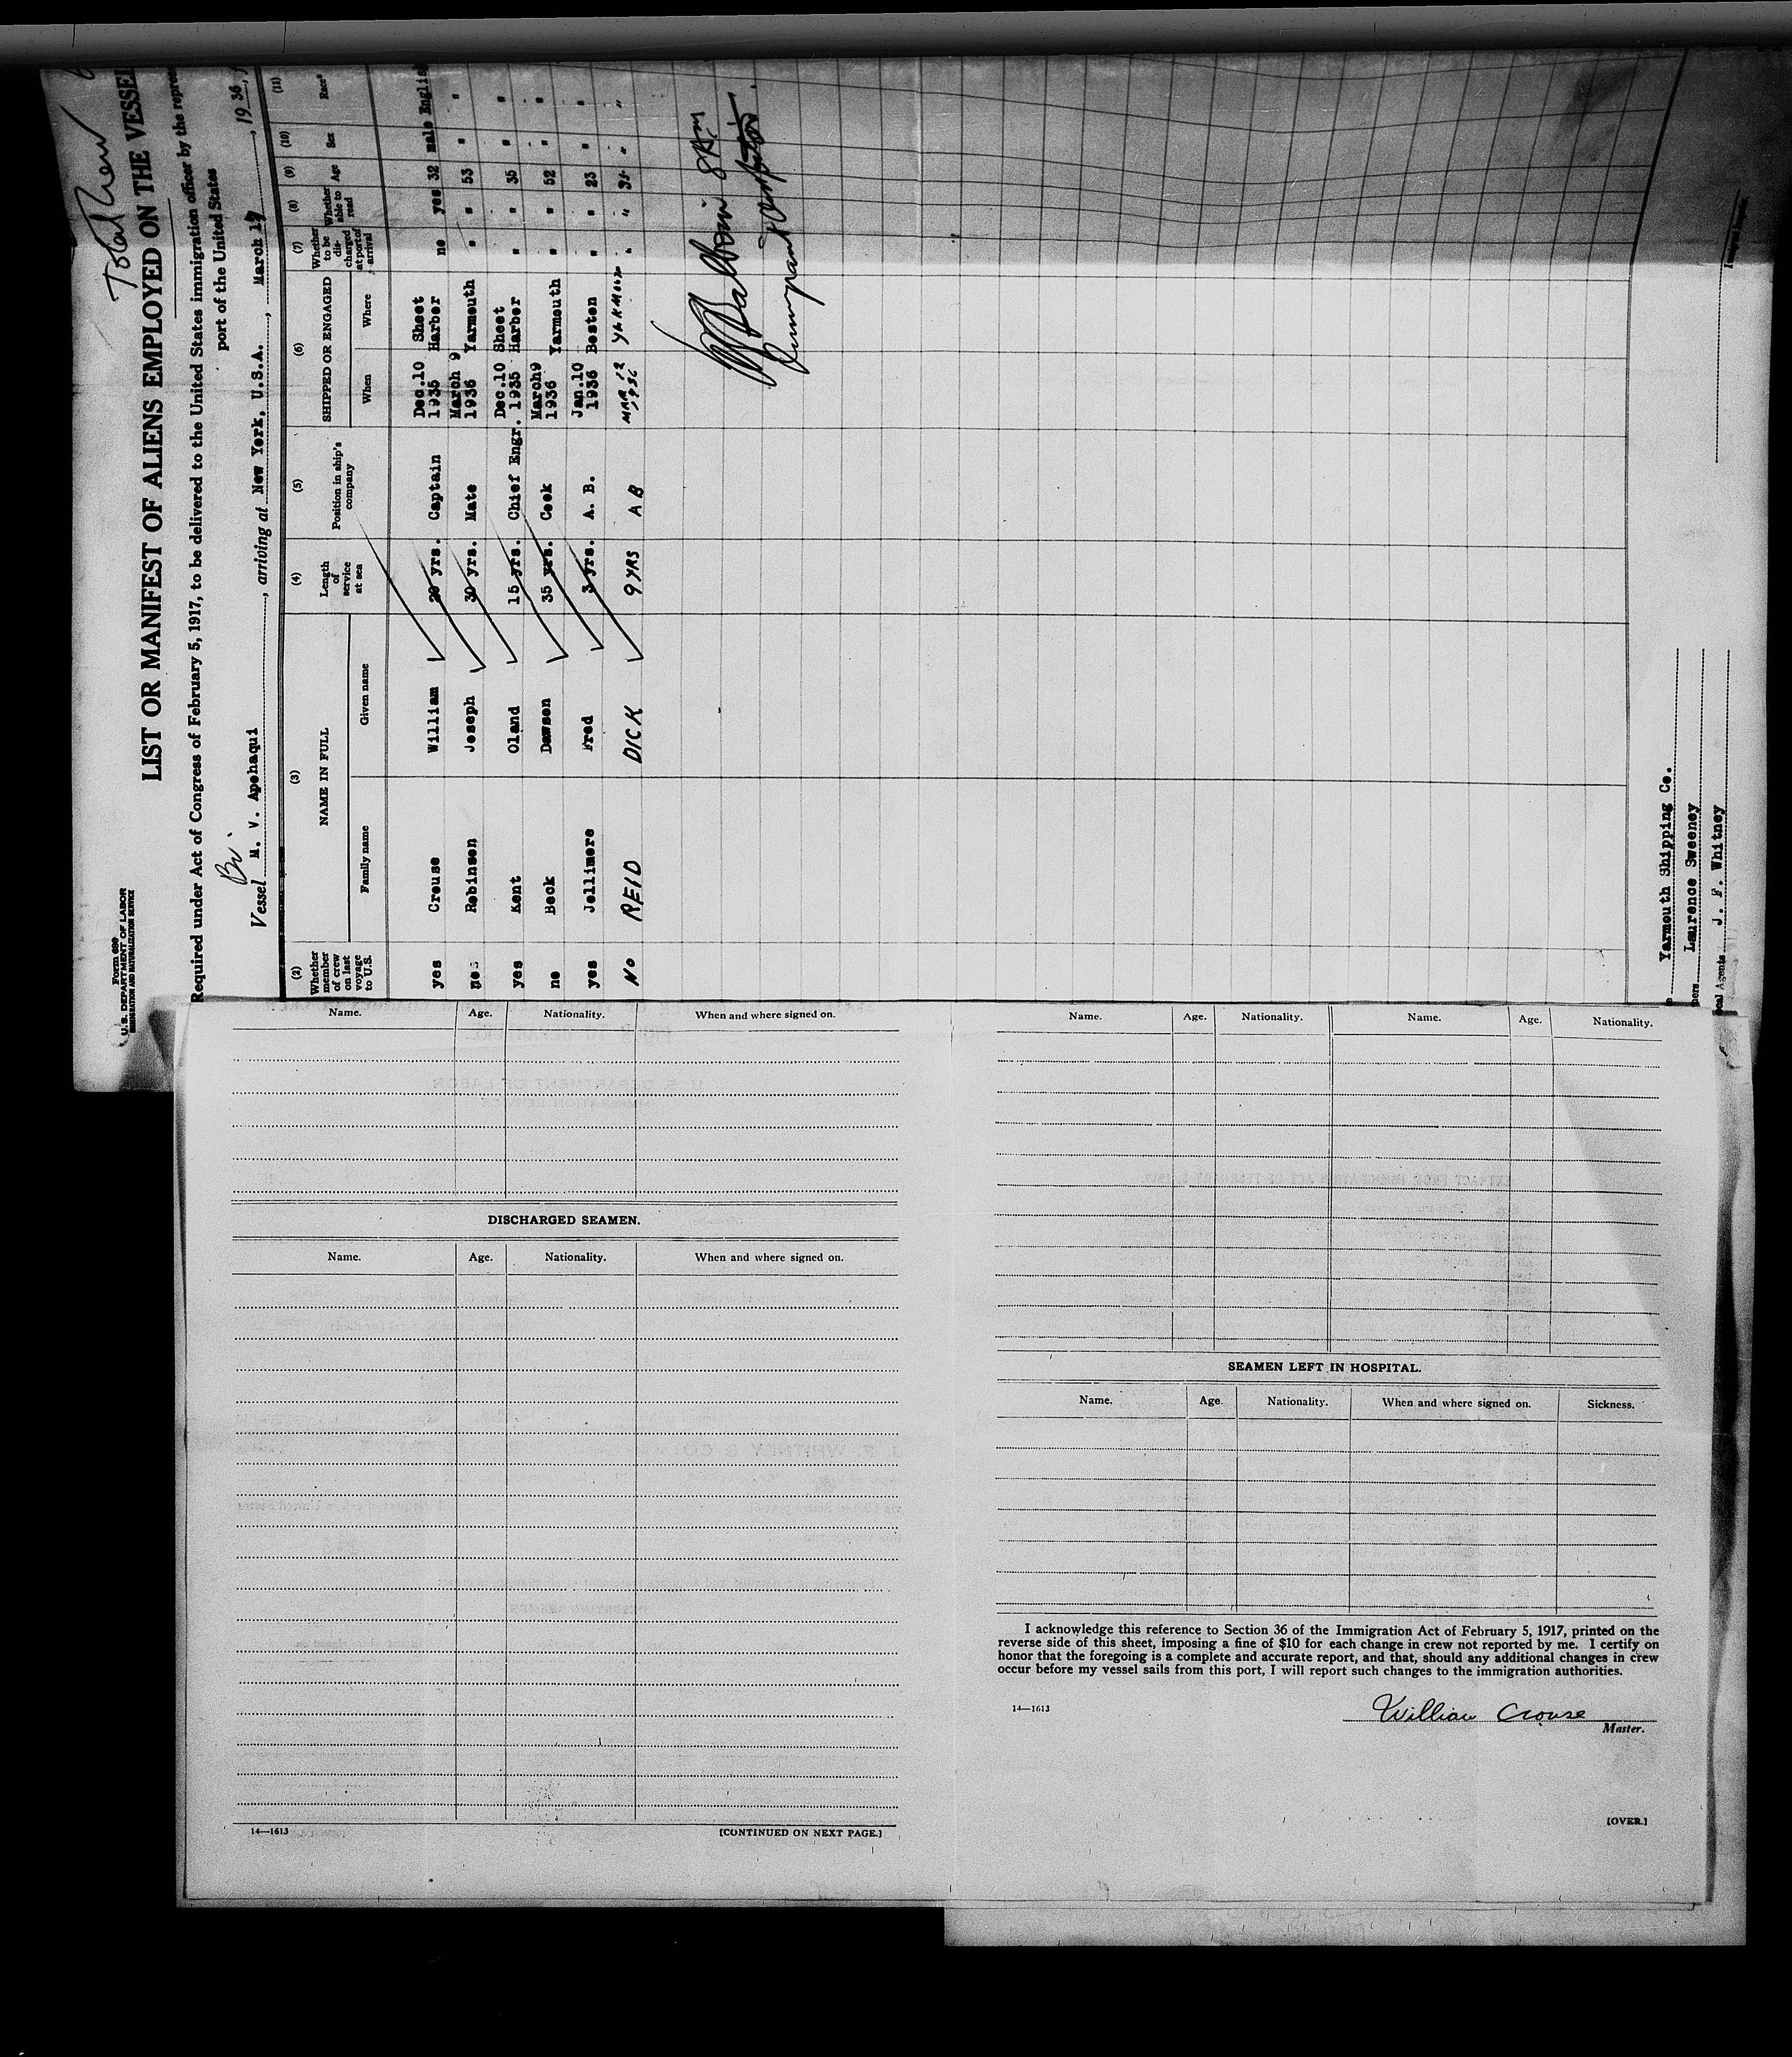 Total Crew 6
Form 680
U.S. DEPARTMENT OF LABOR
IMMIGRATION AND NATURALIZATION SERVICE
LIST OR MANIFEST OF ALIENS EMPLOYED ON THE VESSEL
Required under Act of Congress of February 5, 1917, to be delivered to the United States immigration officer by the repre
port of the United States
Br.
Vessel M. V. Apohaqui, arriving at New York, U.S.A., March 17, 1936,
(2) (3) (4) (5) (6) (7) (8) (9) (10) (11)
Whether member of crew on last voyage to U.S. NAME IN FULL Length of service at sea Position in ship's company SHIPPED OR ENGAGED Whether to be discharged at port of arrival Whether able to read Age Sex Race*
Family name Given name When Where
yes Crouse William 20 yrs. Captain Dec.10 1935 Sheet Harber no yes 32 male English
no Robinson Joseph 30 yrs. Mate March 9 1936 Yarmouth " " 53 " "
yes Kent Oland 15 yrs. Chief Engr. Dec.10 1935 Sheet Harber " " 35 " "
no Beck Dawson 35 yrs. Cook March9 1936 Yarmouth " " 52 " "
yes Jellimore Fred 3 yrs. A. B. Jan.10 1936 Boston " " 23 " "
NO REID DICK 9 YRS A B MAR 12 1936 " "
8 AM
Yarmouth Shipping Co.
Laurence Sweeney
J. F. Whitney
Name. Age. Nationality. When and where signed on.
DISCHARGED SEAMEN.
Name. Age. Nationality. When and where signed on.
14—1613 [CONTINUED ON NEXT PAGE.]
Name. Age. Nationality. Name. Age. Nationality.
SEAMEN LEFT IN HOSPITAL.
Name. Age. Nationality. When and where signed on. Sickness.
I acknowledge this reference to Section 36 of the Immigration Act of February 5, 1917, printed on the
reverse side of this sheet, imposing a fine of $10 for each change in crew not reported by me. I certify on
honor that the foregoing is a complete and accurate report, and that, should any additional changes in crew
occur before my vessel sails from this port, I will report such changes to the immigration authorities.
14—1613
William Crouse
Master.
[OVER.]